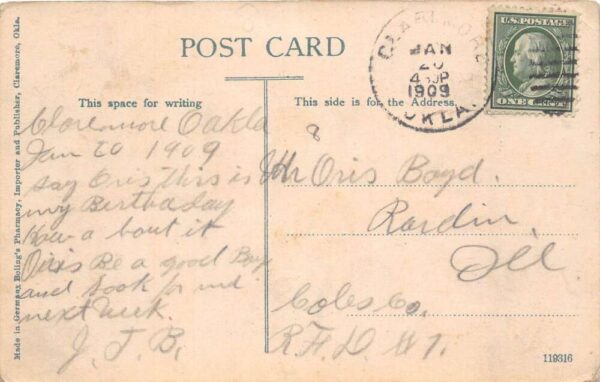 POST CARD
CLAREMORE
JAN
20
4-30P
1909
OKLA.
U.S. POSTAGE
ONE CENT
This space for writing
This side is for the Address.
8
Claremore Oakla
Jan 20 1909
say Oris this is
my Birthaday
How a bout it
Oris Be a good Boy
and Look for me
next week.
J. T. B.
Mr Oris Boyd.
Rardin,
Ill
Coles Co.
R.F.D #1.
Made in Germany Boling's Pharmacy, Importer and Publisher, Claremore, Okla.
119316